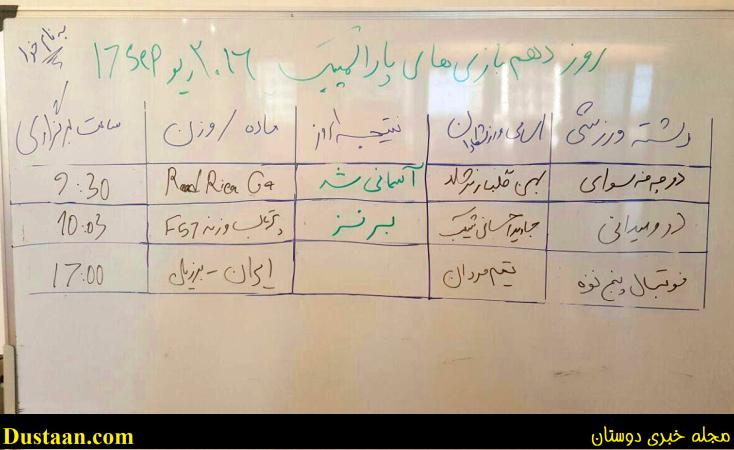 به نام خدا
روز دهم بازی های پارالمپیک ۲۰۱۶ ریو 17 Sep
رشته ورزشی اسامی ورزشکاران نتیجه امروز ماده / وزن ساعت برگزاری
دوچرخه سواری بهمن گلبارنژاد آسمانی شد Road Race C4 9:30
دو و میدانی جاوید احسانی شکیب برنز پرتاب وزنه F57 10:03
فوتبال پنج نفره تیم مردان ایران - برزیل 17:00
Dustaan.com مجله خبری دوستان